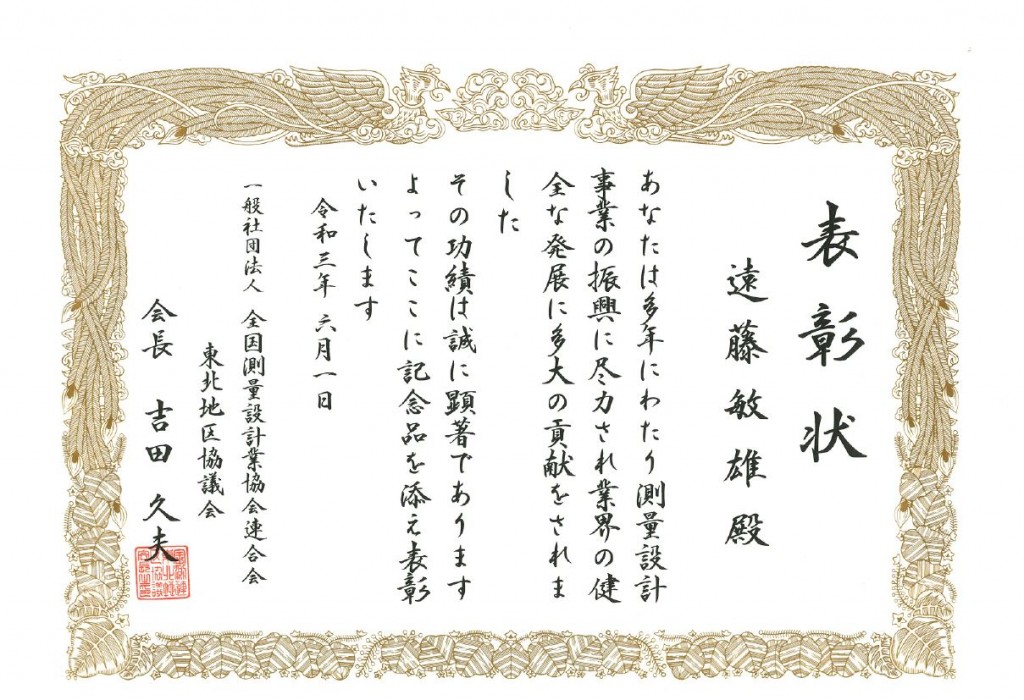 表彰状
遠藤敏雄殿
あなたは多年にわたり測量設計
事業の振興に尽力され業界の健
全な発展に多大の貢献をされま
した
その功績は誠に顕著であります
よってここに記念品を添え表彰
いたします
令和三年六月一日
一般社団法人 全国測量設計業協会連合会
東北地区協議会
会長 吉田久夫